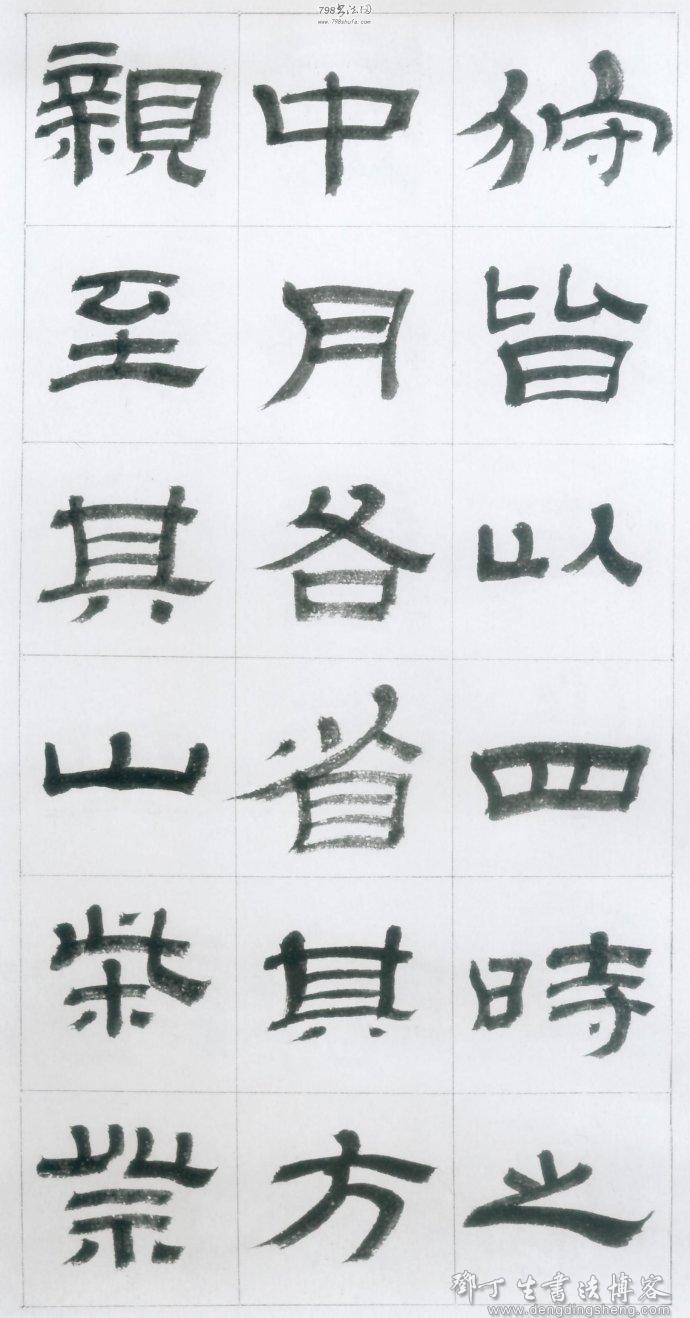 798书法网
www.798shufa.com
狩皆以四時之
中月各省其方
親至其山柴祡
鄧丁生書法博客
www.dengdingsheng.com